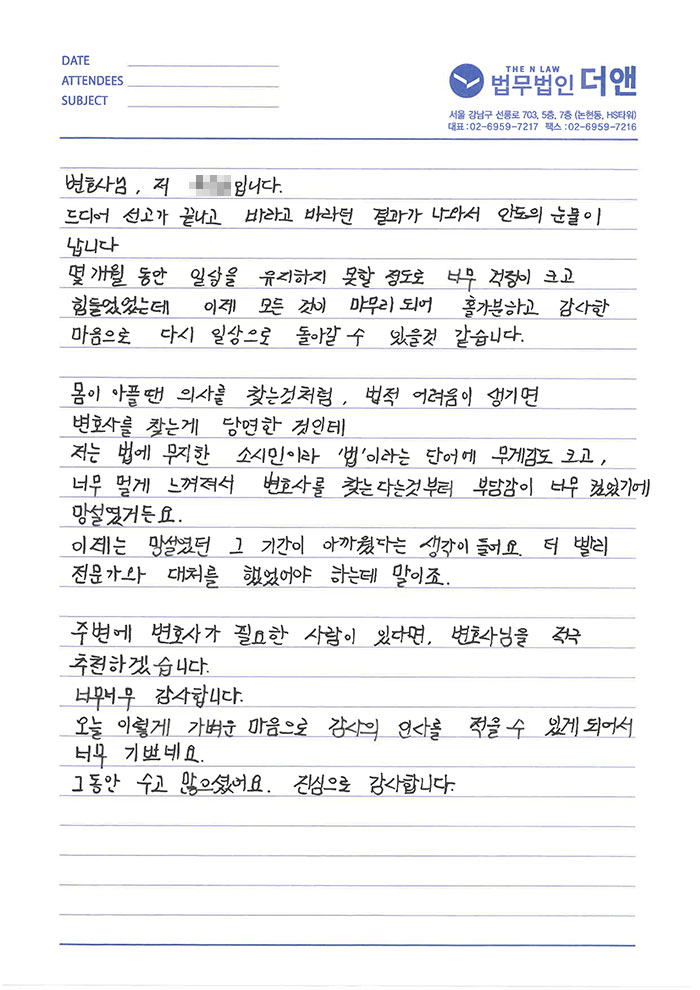 DATE
ATTENDEES
SUBJECT
THE N LAW
법무법인 더앤
서울 강남구 선릉로 703, 5층, 7층 (논현동, HS타워)
대표 : 02-6959-7217 팩스 : 02-6959-7216
변호사님, 저 입니다.
드디어 선고가 끝나고 바라고 바라던 결과가 나와서 안도의 눈물이
납니다
몇 개월 동안 일상을 유지하지 못할 정도로 너무 걱정이 크고
힘들었었는데 이제 모든 것이 마무리 되어 홀가분하고 감사한
마음으로 다시 일상으로 돌아갈 수 있을것 같습니다.
몸이 아플땐 의사를 찾는것처럼, 법적 어려움이 생기면
변호사를 찾는게 당연한 것인데
저는 법에 무지한 소시민이라 '법'이라는 단어에 무게감도 크고,
너무 멀게 느껴져서 변호사를 찾는다는것부터 부담감이 너무 컸었기에
망설였거든요.
이제는 망설였던 그 기간이 아까웠다는 생각이 들어요. 더 빨리
전문가와 대처를 했었어야 하는데 말이죠.
주변에 변호사가 필요한 사람이 있다면, 변호사님을 적극
추천하겠습니다.
너무너무 감사합니다.
오늘 이렇게 가벼운 마음으로 감사의 인사를 적을 수 있게 되어서
너무 기쁘네요.
그동안 수고 많으셨어요. 진심으로 감사합니다.